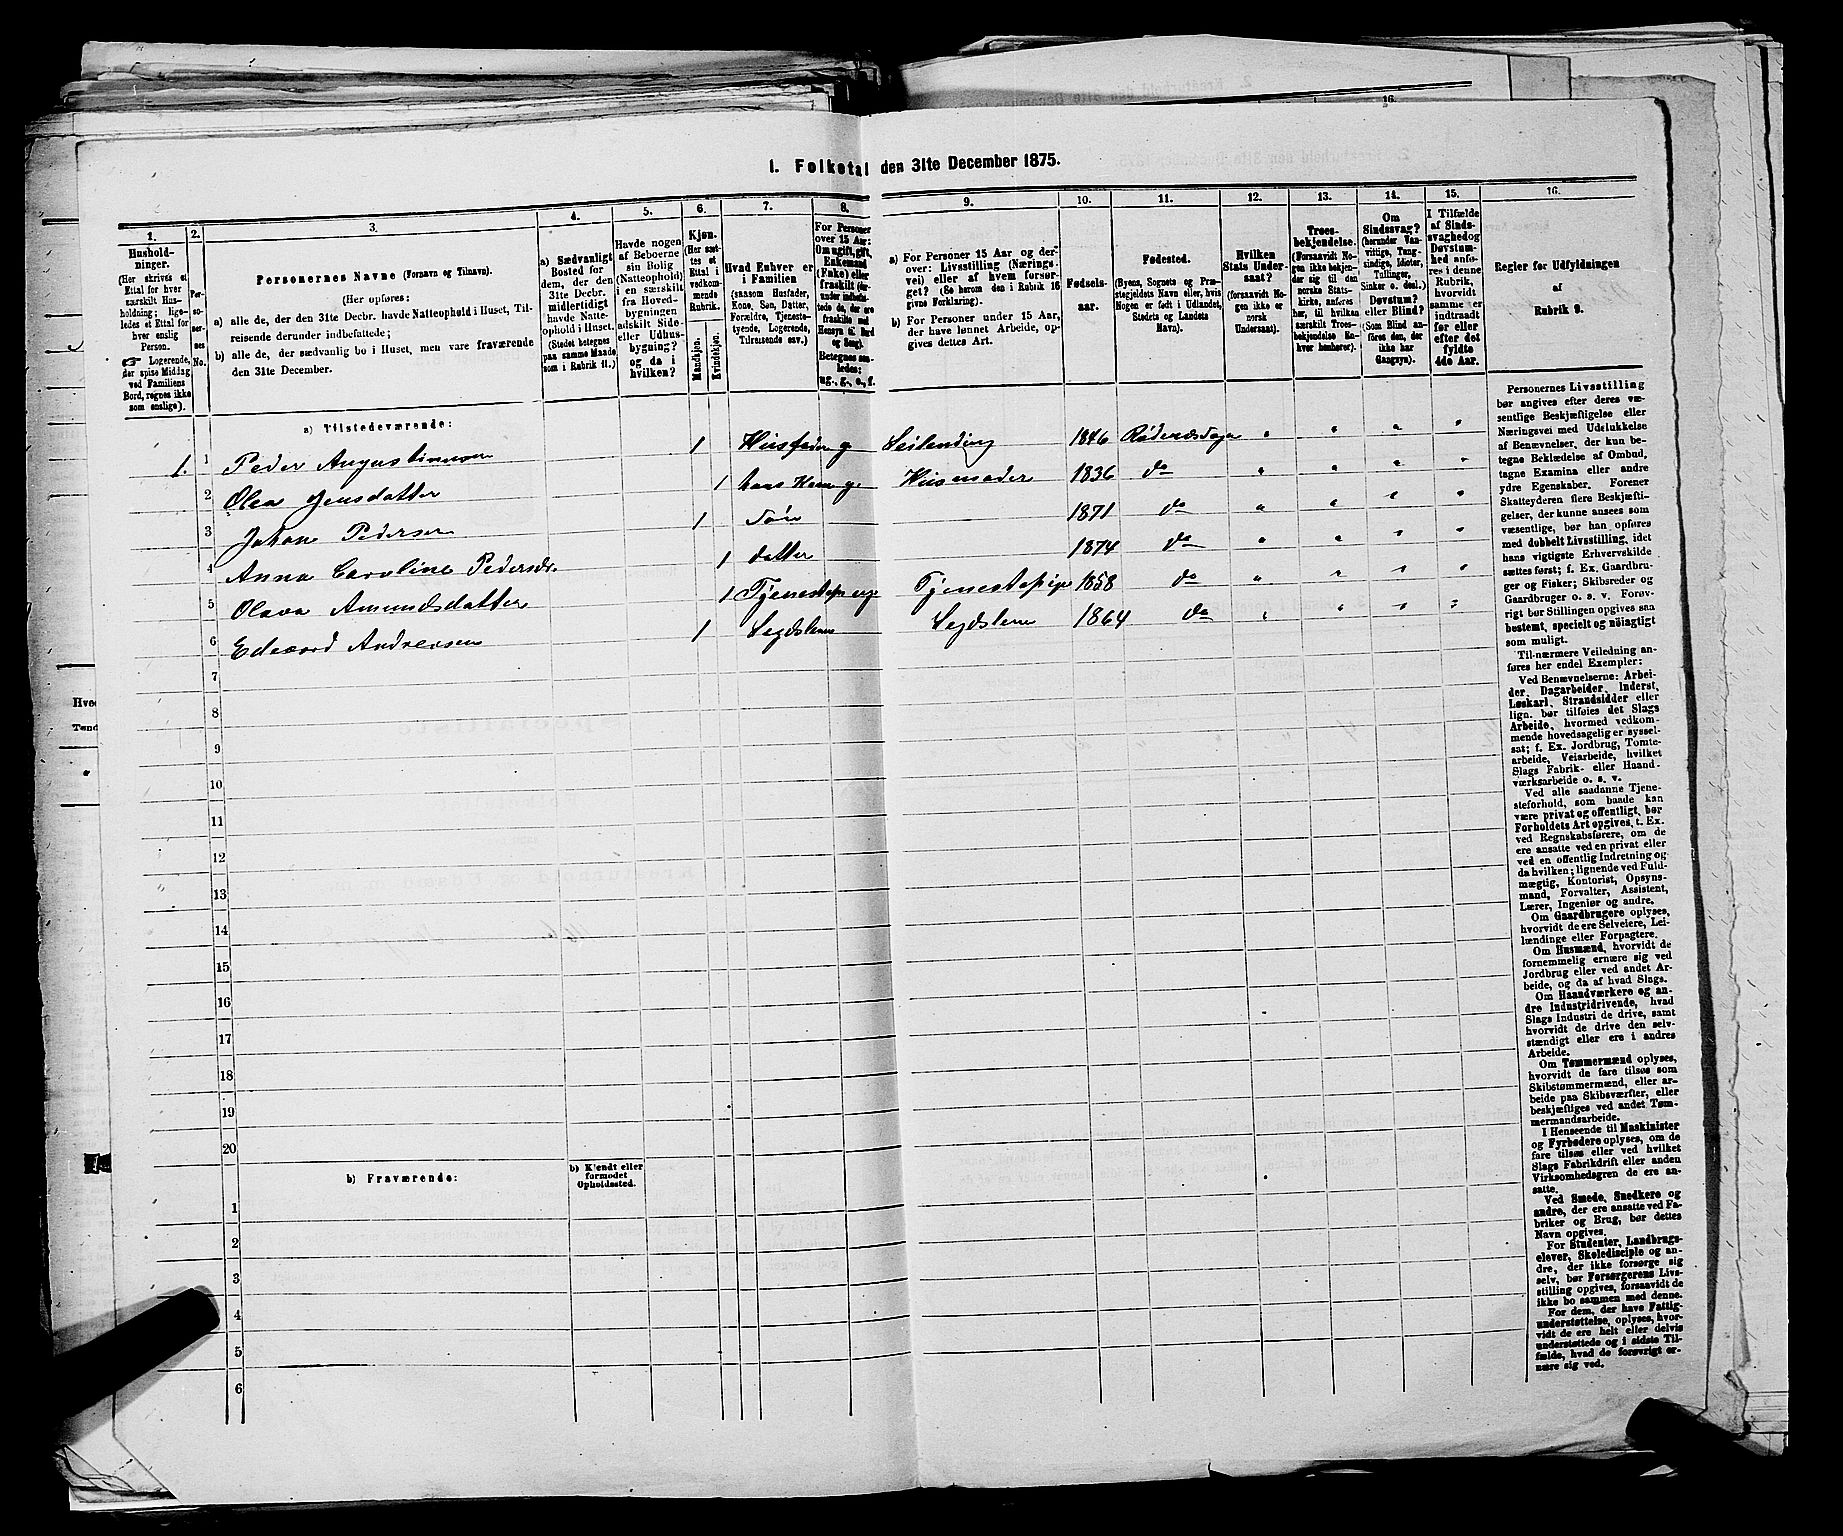 1. Folketal den 31te December 1875.
1.
2.
3.
4.
5.
6.
7.
8.
9.
10.
11.
12.
13.
14.
15.
16.
Hushold-
ninger.
(Her skrives et
Ettal for hver
særskilt Hus-
holdning; lige-
ledes et Ettal for
hver enslig
Person.
☞ Logerende,
der spise Middag
ved Familiens
Bord, regnes ikke
som enslige).
Per-
so-
ner-
nes
No.
Personernes Navne (Fornavn og Tilnavn).
(Her opføres:
a) alle de, der den 31te Decbr. havde Natteophold i Huset, Til-
reisende derunder indbefattede;
b) alle de, der sædvanlig bo i Huset, men vare fraværende
den 31te December.
a) Sædvanligt
Bosted for
dem, der den
31te Decbr.
midlertidigt
havde Natte-
ophold i Huset.
(Stedet betegnes
paa samme Maade
som i Rubrik 11.)
Havde nogen
af Beboerne
sin Bolig
(Natteophold)
i en særskilt
fra Hoved-
bygningen
adskilt Side-
eller Udhus-
bygning?
og da i
hvilken?
Kjøn.
(Her sæt-
tes et
Ettal i
vedkom-
mende
Rubrik.
Mandkjøn.
Kvindekjøn.
Hvad Enhver er
i Familien
(saasom Husfader,
Kone, Søn, Datter,
Forældre, Tjeneste-
tyende, Logerende,
Tilreisende osv.)
For Personer
over 15 Aar:
Om ugift, gift,
Enkemand
(Enke) eller
fraskilt
Betegnes saa-
ledes:
ug., g., e., f.
a) For Personer 15 Aar og der-
over: Livsstilling (Nærings-
vei) eller af hvem forsør-
get? (Se herom den i Rubrik 16
givne Forklaring).
b) For Personer under 15 Aar,
der have lønnet Arbeide, op-
gives dettes Art.
Fødsels-
aar.
Fødested.
(Byens, Sognets og Præ-
stegjeldets Navn eller, hvis
Nogen er født i Udlandet,
Stedets og Landets
Navn).
Hvilken
Stats Under-
saat?
(forsaavidt No-
gen ikke er
norsk
Undersaat).
Troes-
bekjendelse.
(Forsaavidt No-
gen ikke bekjen-
der sig til den
norske Stats-
kirke, anføres
her, til hvilken
særskilt Troes-
bekjendelse En-
hver henhører).
Om
Sindssvag?
(herunder Van-
vittige, Tung-
sindige, Idioter,
Tullinger,
Sinker o. desl.)
Døvstum?
eller Blind?
(Som Blind an-
føres den, der
ikke har
Gangsyn).
I Tilfælde
af Sinds-
svaghed og
Døvstum-
hed anfø-
res i denne
Rubrik,
hvorvidt
samme er
indtraadt
før eller
efter det
fyldte
4de Aar.
Regler for Udfyldningen
af
Rubrik 9.
a) Tilstedeværende:
1. 1 Peder Augustinusen 1 Husfader g Leilending 1846 Rødenæs Sogn
2 Olea Jensdatter 1 hans Kone g. Husmoder 1836 do
3 Johan Pedersen 1 Søn 1871 do
4 Anna Caroline Pedersdr. 1 datter 1874 do
5 Olava Amundsdatter 1 Tjenestepige ug Tjenestepige 1858 do
6 Edvard Andreasen 1 Legdslem Legdslem 1864 do
7
8
9
10
11
12
13
14
15
16
17
18
19
20
b) Fraværende:
b) Kjendt eller
formodet
Opholdssted.
1
2
3
4
5
6
Personernes Livsstilling
bør angives efter deres væ-
sentlige Beskjæftigelse eller
Næringsvei med Udelukkelse
af Benævnelser, der kun be-
tegne Beklædelse af Ombud,
tagne Examina eller andre
ydre Egenskaber. Forener
Skatteyderen flere Beskjæfti-
gelser, der kunne ansees som
væsentlige, bør han opføres
med dobbelt Livsstilling, idet
hans vigtigste Erhvervskilde
sættes først; f. Ex. Gaardbru-
ger og Fisker; Skibsreder og
Gaardbruger o. s. v. Forøv-
rigt bør Stillingen opgives saa
bestemt, specielt og nøiagtigt
som muligt.
Til nærmere Veiledning an-
føres her endel Exempler:
Ved Benævnelserne: Arbei-
der, Dagarbeider, Inderst,
Løskarl, Strandsidder eller
lign. bør tilføies det Slags
Arbeide, hvormed vedkom-
mende hovedsagelig er syssel-
sat; f. Ex. Jordbrug, Tomte-
arbeide, Veiarbeide, hvilket
Slags Fabrik- eller Haand-
værksarbeide o. s. v.
Ved alle saadanne Tjene-
steforhold, som baade kan
være privat og offentligt, bør
Forholdets Art opgives, t. Ex.
ved Regnskabsførere, om de
ere ansatte ved en privat eller
ved en offentlig Indretning og
da hvilken; lignende ved Fuld-
mægtig, Kontorist, Opsyns-
mand, Forvalter, Assistent,
Lærer, Ingeniør og andre.
Om Gaardbrugere oplyses,
hvorvidt de ere Selveiere, Lei-
lændinge eller Forpagtere.
Om Husmænd, hvorvidt de
fornemmelig ernære sig ved
Jordbrug eller ved andet Ar-
beide, og da af hvad Slags.
Om Haandværkere og an-
dre Industridrivende, hvad
Slags Industri de drive, samt
hvorvidt de drive den selv-
stændigt eller ere i andres
Arbeide.
Om Tømmermænd oplyses,
hvorvidt de fare tilsøs som
Skibstømmermænd, eller ar-
beide paa Skibsværfter, eller
beskjæftiges ved andet Tøm-
mermandsarbeide.
I Henseende til Maskinister
og Fyrbødere oplyses, om de
fare tilsøs eller ved hvilket
Slags Fabrikdrift eller anden
Virksomhedsgren de ere an-
satte.
Ved Smede, Snedkere og
andre, der ere ansatte ved Fa-
briker og Brug, bør dettes
Navn opgives.
For Studenter, Landbrugs-
elever, Skoledisciple og an-
dre, der ikke forsørge sig
selv, bør Forsørgerens Livs-
stilling opgives, forsaavidt de
ikke bo sammen med denne.
For dem, der have Fattig-
understøttelse, oplyses, hvor-
vidt de ere helt eller delvis
understøttede og i sidste Til-
fælde, hvad de forøvrigt er-
nære sig ved.